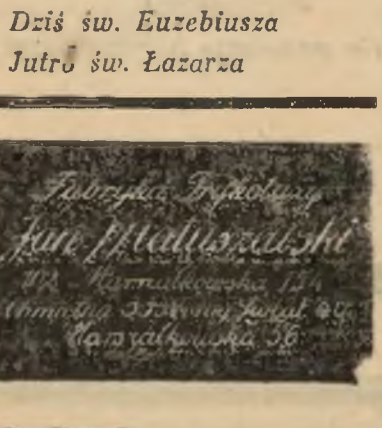 Dziś św. Euzebiusza
Jutro św. Łazarza
Fabryka Trykotaży
Jan Matuszewski
Marszałkowska 154
Chmielna Nowy Świat
Marszałkowska 56